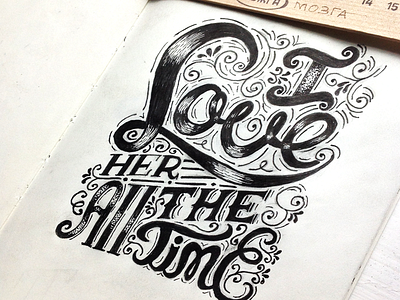 МОЗГА
14 15
I
Love
HER
All THE
Time